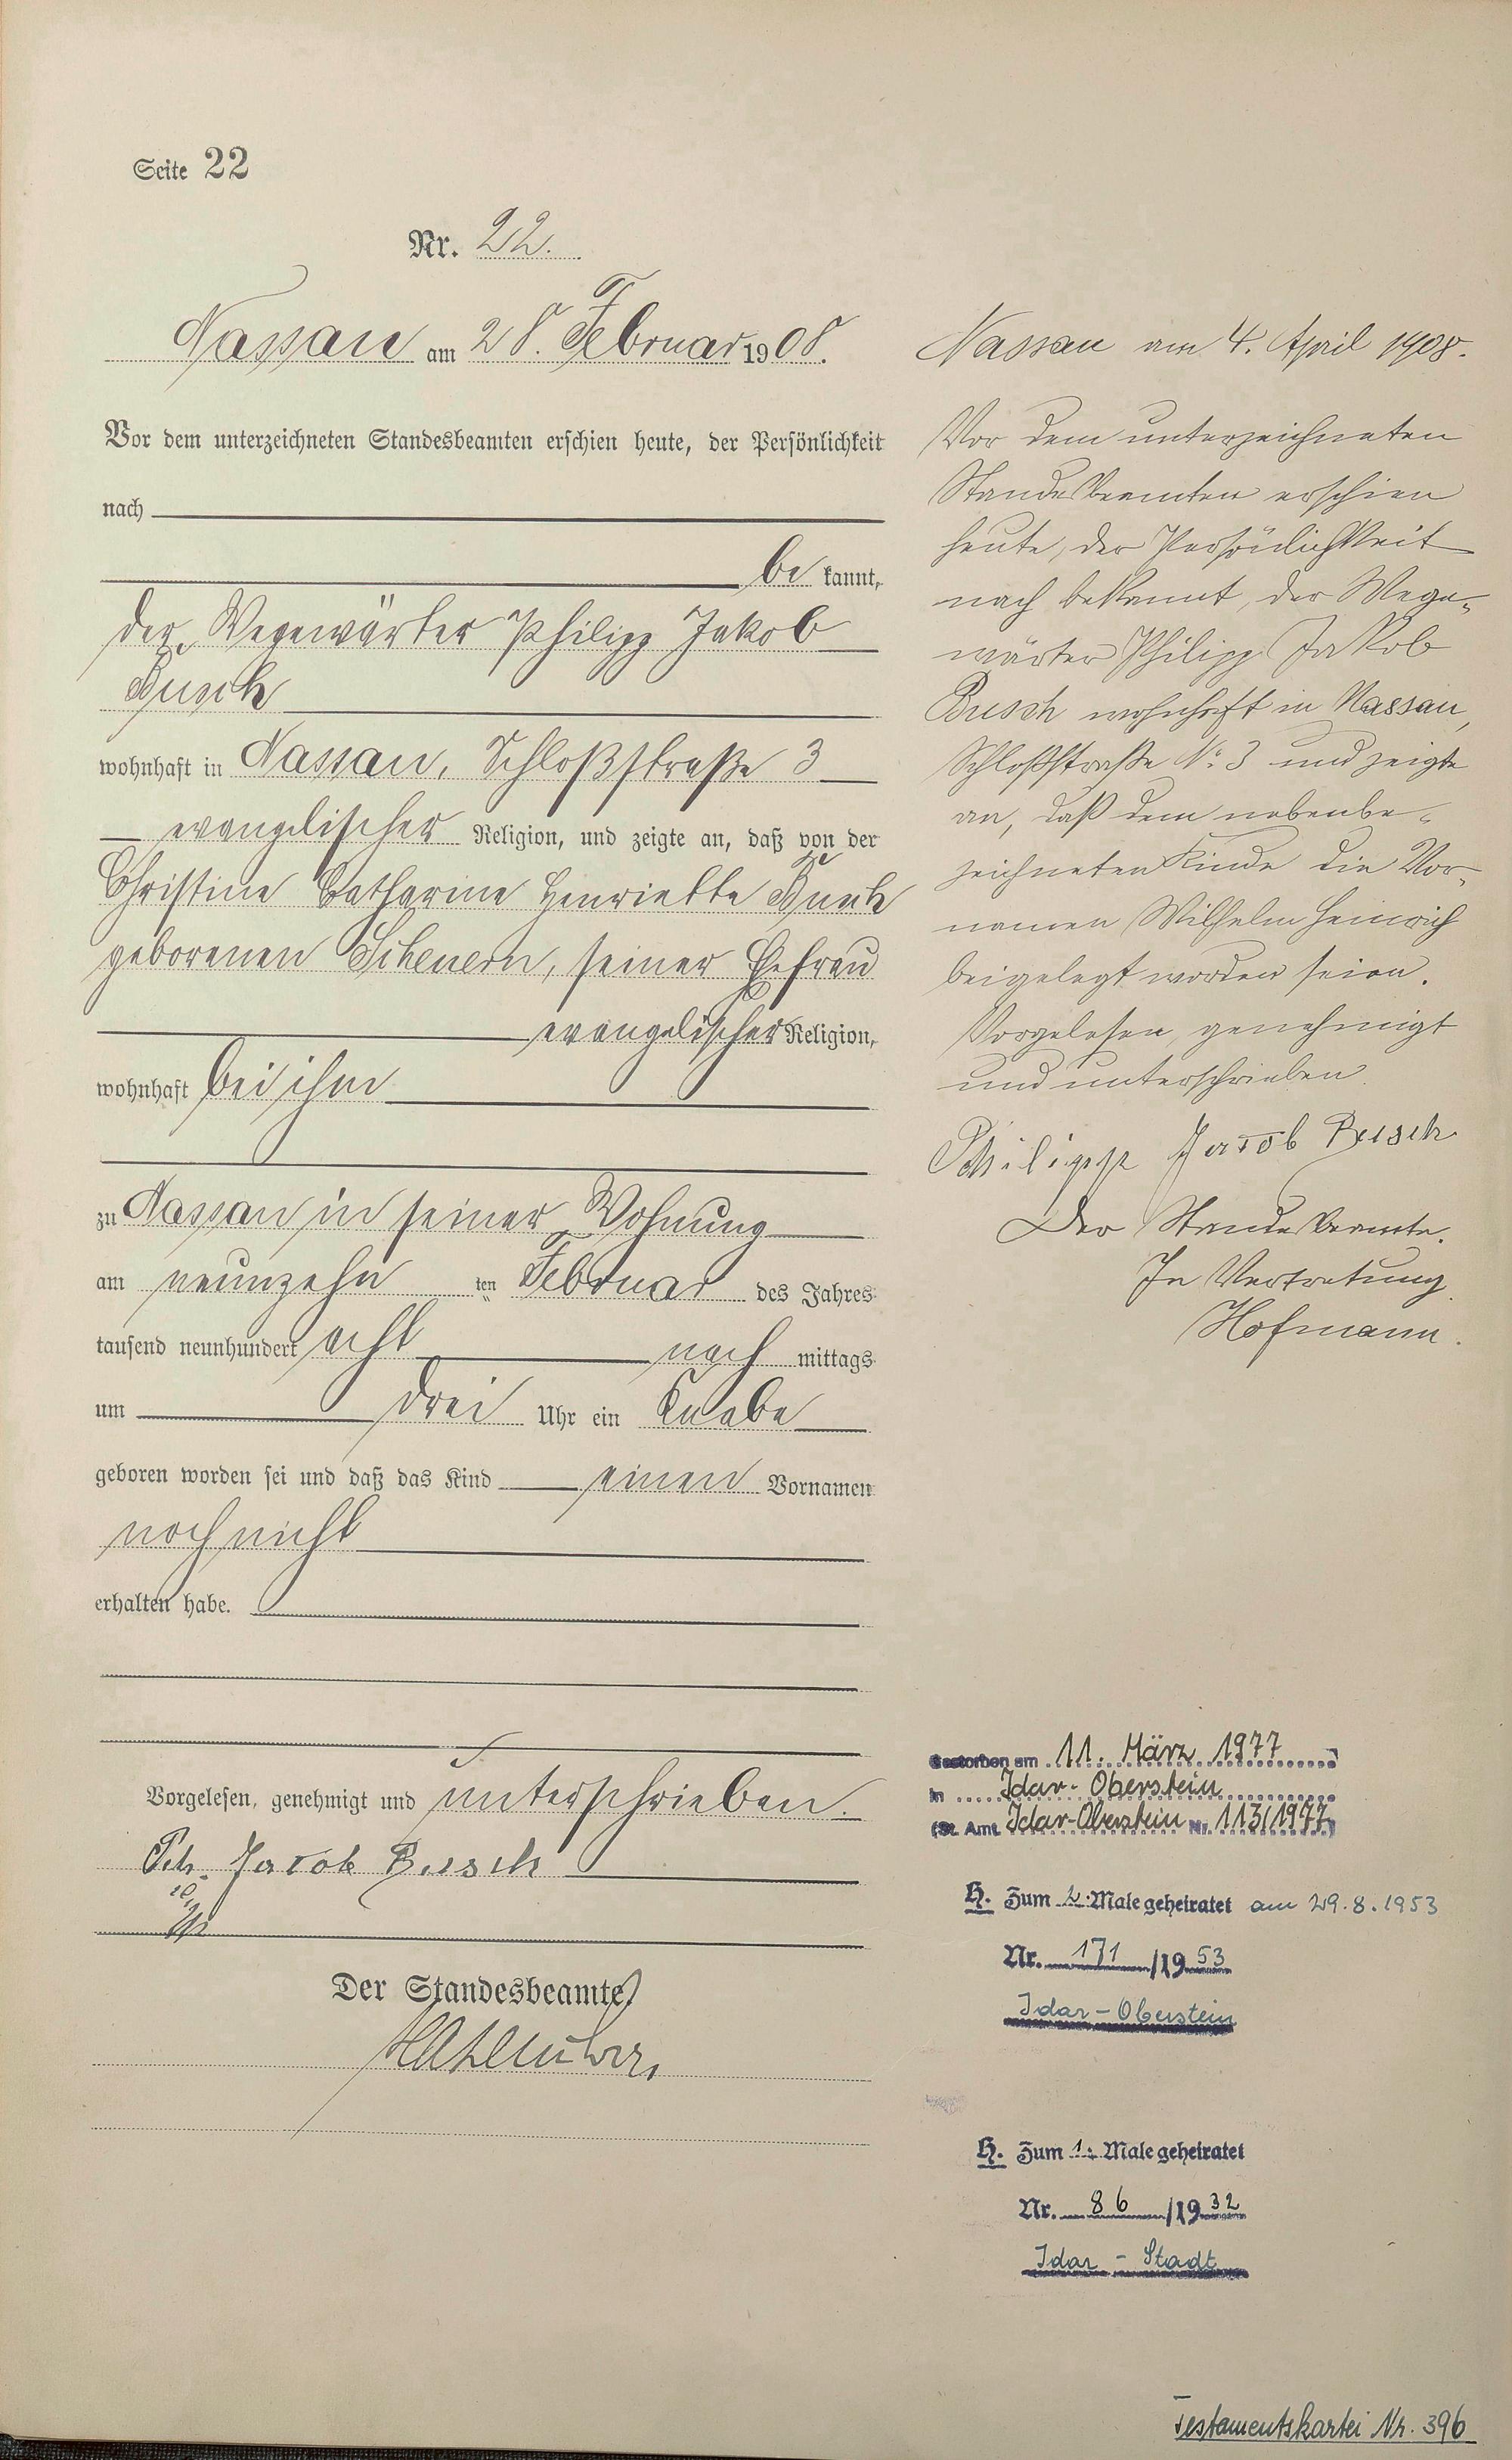 Seite 22
Nr. 22.
Nassau am 28. Februar 1908.
Vor dem unterzeichneten Standesbeamten erschien heute, der Persönlichkeit
nach
be kannt,
der Wegewärter Philipp Jakob
Busch
wohnhaft in Nassau, Schloßstraße 3
evangelischer Religion, und zeigte an, daß von der
Christine Catharine Henriette Busch
geborenen Scheuern, seiner Ehefrau
evangelischer Religion,
wohnhaft bei ihm
zu Nassau in seiner Wohnung
am neunzehn ten Februar des Jahres
tausend neunhundert acht nach mittags
um drei Uhr ein Knabe
geboren worden sei und daß das Kind einen Vornamen
noch nicht
erhalten habe.
Vorgelesen, genehmigt und unterschrieben.
Ph. Jacob Busch
Der Standesbeamte
Nassau am 4. April 1908.
Vor dem unterzeichneten
Standesbeamten erschien
heute, der Persönlichkeit
nach bekannt, der Wege-
wärter Philipp Jakob
Busch wohnhaft in Nassau,
Schloßstraße No. 3 und zeigte
an, daß dem nebenbe-
zeichneten Kinde die Vor-
namen Wilhelm Heinrich
beigelegt worden seien.
Vorgelesen, genehmigt
und unterschrieben.
Philipp Jacob Busch
Der Standesbeamte.
In Vertretung
Hofmann.
Gestorben am 11. März 1977
in Idar-Oberstein
(St. Amt Idar-Oberstein Nr. 113/1977)
H. Zum 2. Male geheiratet am 29.8.1953
Nr. 171/1953
Idar-Oberstein
H. Zum 1. Male geheiratet
Nr. 86/1932
Idar-Stadt
Testamentskartei Nr. 396